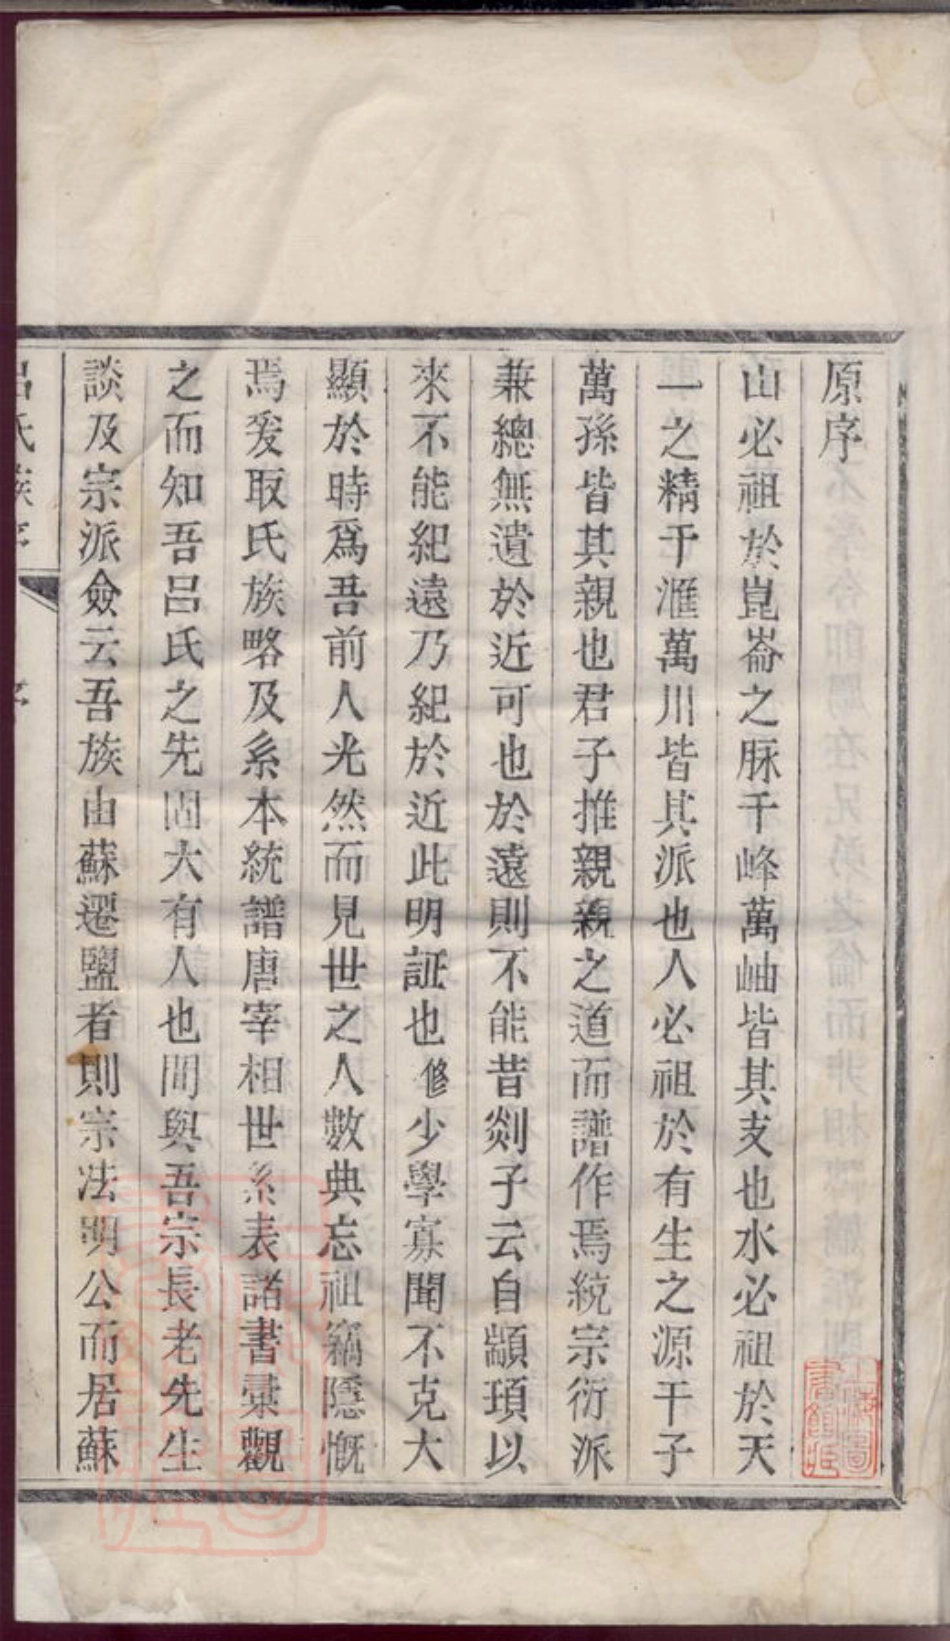 原序
山必祖於崑崙之脉千峰萬岫皆其支也水必祖於天
一之精千滙萬川皆其派也人必祖於有生之源千子
萬孫皆其親也君子推親親之道而譜作焉統宗衍派
兼總無遺於近可也於遠則不能昔剡子云自顓頊以
來不能紀遠乃紀於近此明証也修少學寡聞不克大
顯於時爲吾前人光然而見世之人數典忘祖竊隱慨
焉爰取氏族略及系本統譜唐宰相世系表諸書彙觀
之而知吾呂氏之先固大有人也間與吾宗長老先生
談及宗派僉云吾族由蘇遷鹽者則宗法明公而居蘇
呂氏族